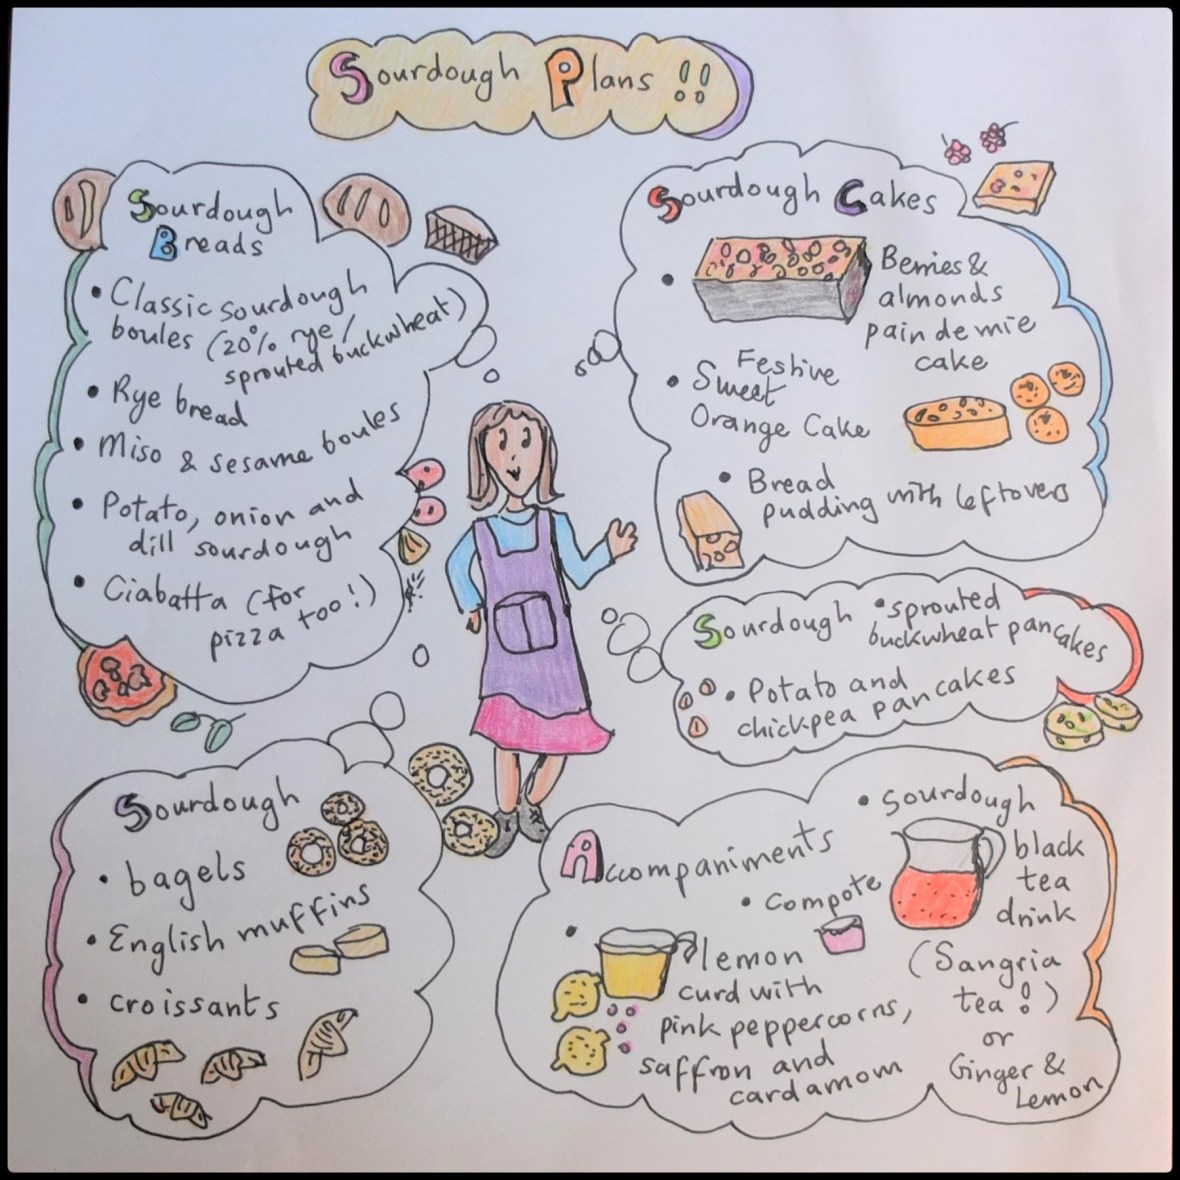 Sourdough Plans !!
Sourdough
Breads
• Classic sourdough
boules (20% rye/
sprouted buckwheat)
• Rye bread
• Miso & sesame boules
• Potato, onion and
dill sourdough
• Ciabatta (for
pizza too!)
Sourdough Cakes
• Berries &
almonds
pain de mie
cake
• Festive
Sweet
Orange Cake
• Bread
pudding with leftovers
Sourdough • sprouted
buckwheat pancakes
• Potato and
chickpea pancakes
Sourdough
• bagels
• English muffins
• croissants
Accompaniments
• Compote
• lemon
curd with
pink peppercorns,
saffron and
cardamom
• Sourdough
black
tea
drink
(Sangria
tea!)
or
Ginger &
Lemon